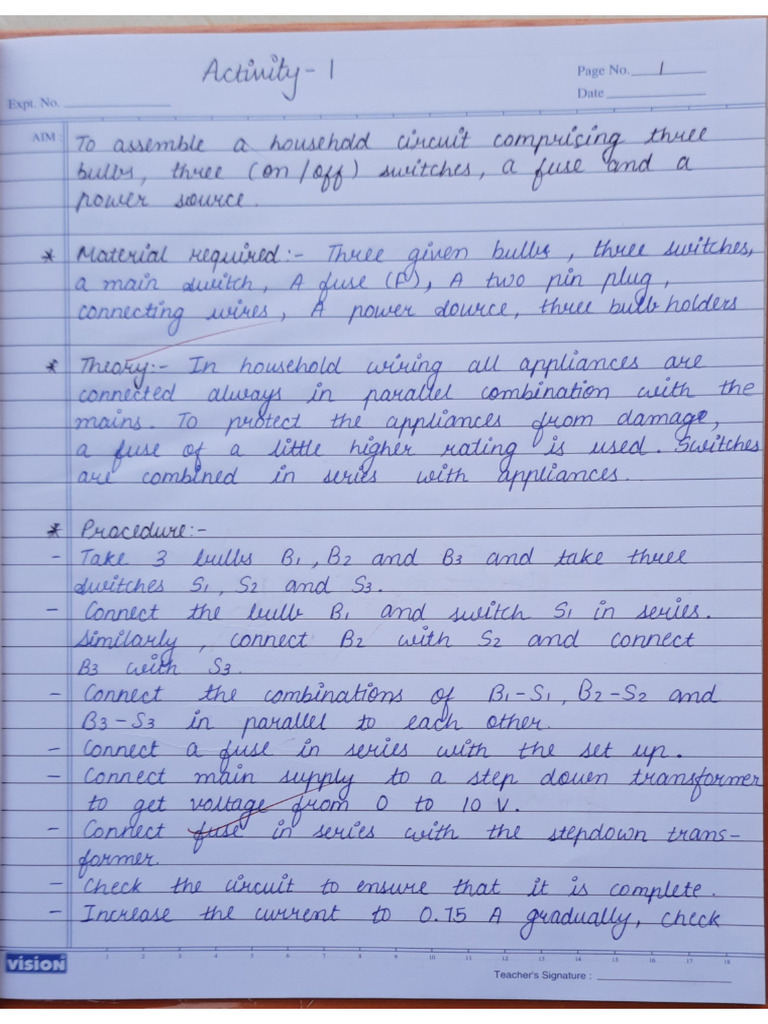 Activity - 1
Page No. 1
Expt. No.
Date
AIM :
To assemble a household circuit comprising three
bulbs, three (on/off) switches, a fuse and a
power source.
* Material required:- Three given bulbs, three switches,
a main switch, A fuse (F), A two pin plug,
connecting wires, A power source, three bulb holders
* Theory:- In household wiring all appliances are
connected always in parallel combination with the
mains. To protect the appliances from damage,
a fuse of a little higher rating is used. Switches
are combined in series with appliances.
* Procedure:-
- Take 3 bulbs B1, B2 and B3 and take three
switches S1, S2 and S3.
- Connect the bulb B1 and switch S1 in series.
Similarly, connect B2 with S2 and connect
B3 with S3.
- Connect the combinations of B1-S1, B2-S2 and
B3-S3 in parallel to each other.
- Connect a fuse in series with the set up.
- Connect main supply to a step down transformer
to get voltage from 0 to 10 V.
- Connect fuse in series with the stepdown trans-
former.
- Check the circuit to ensure that it is complete.
- Increase the current to 0.75 A gradually, check
vision
1 2 3 4 5 6 7 8 9 10 11 12 13 14 15 16 17 18
Teacher's Signature :